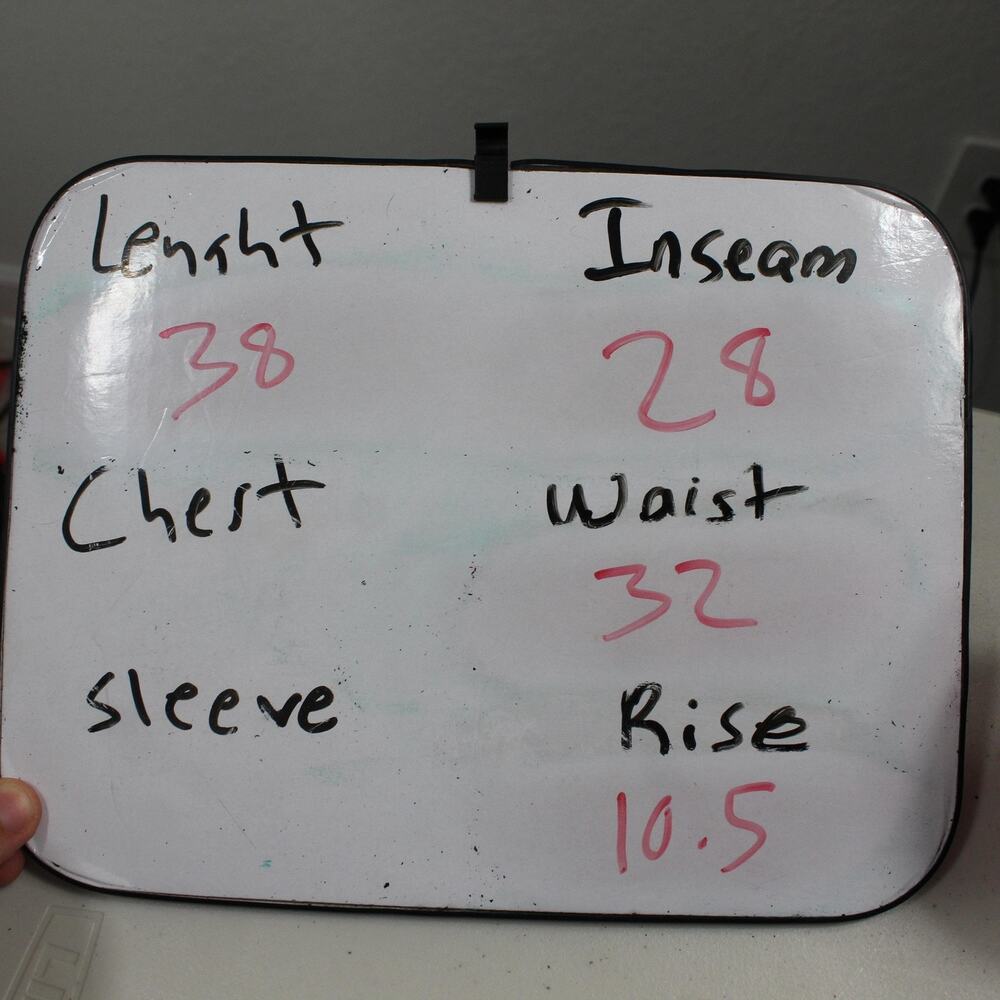 Lenght Inseam
38 28
Chest Waist
32
sleeve Rise
10.5